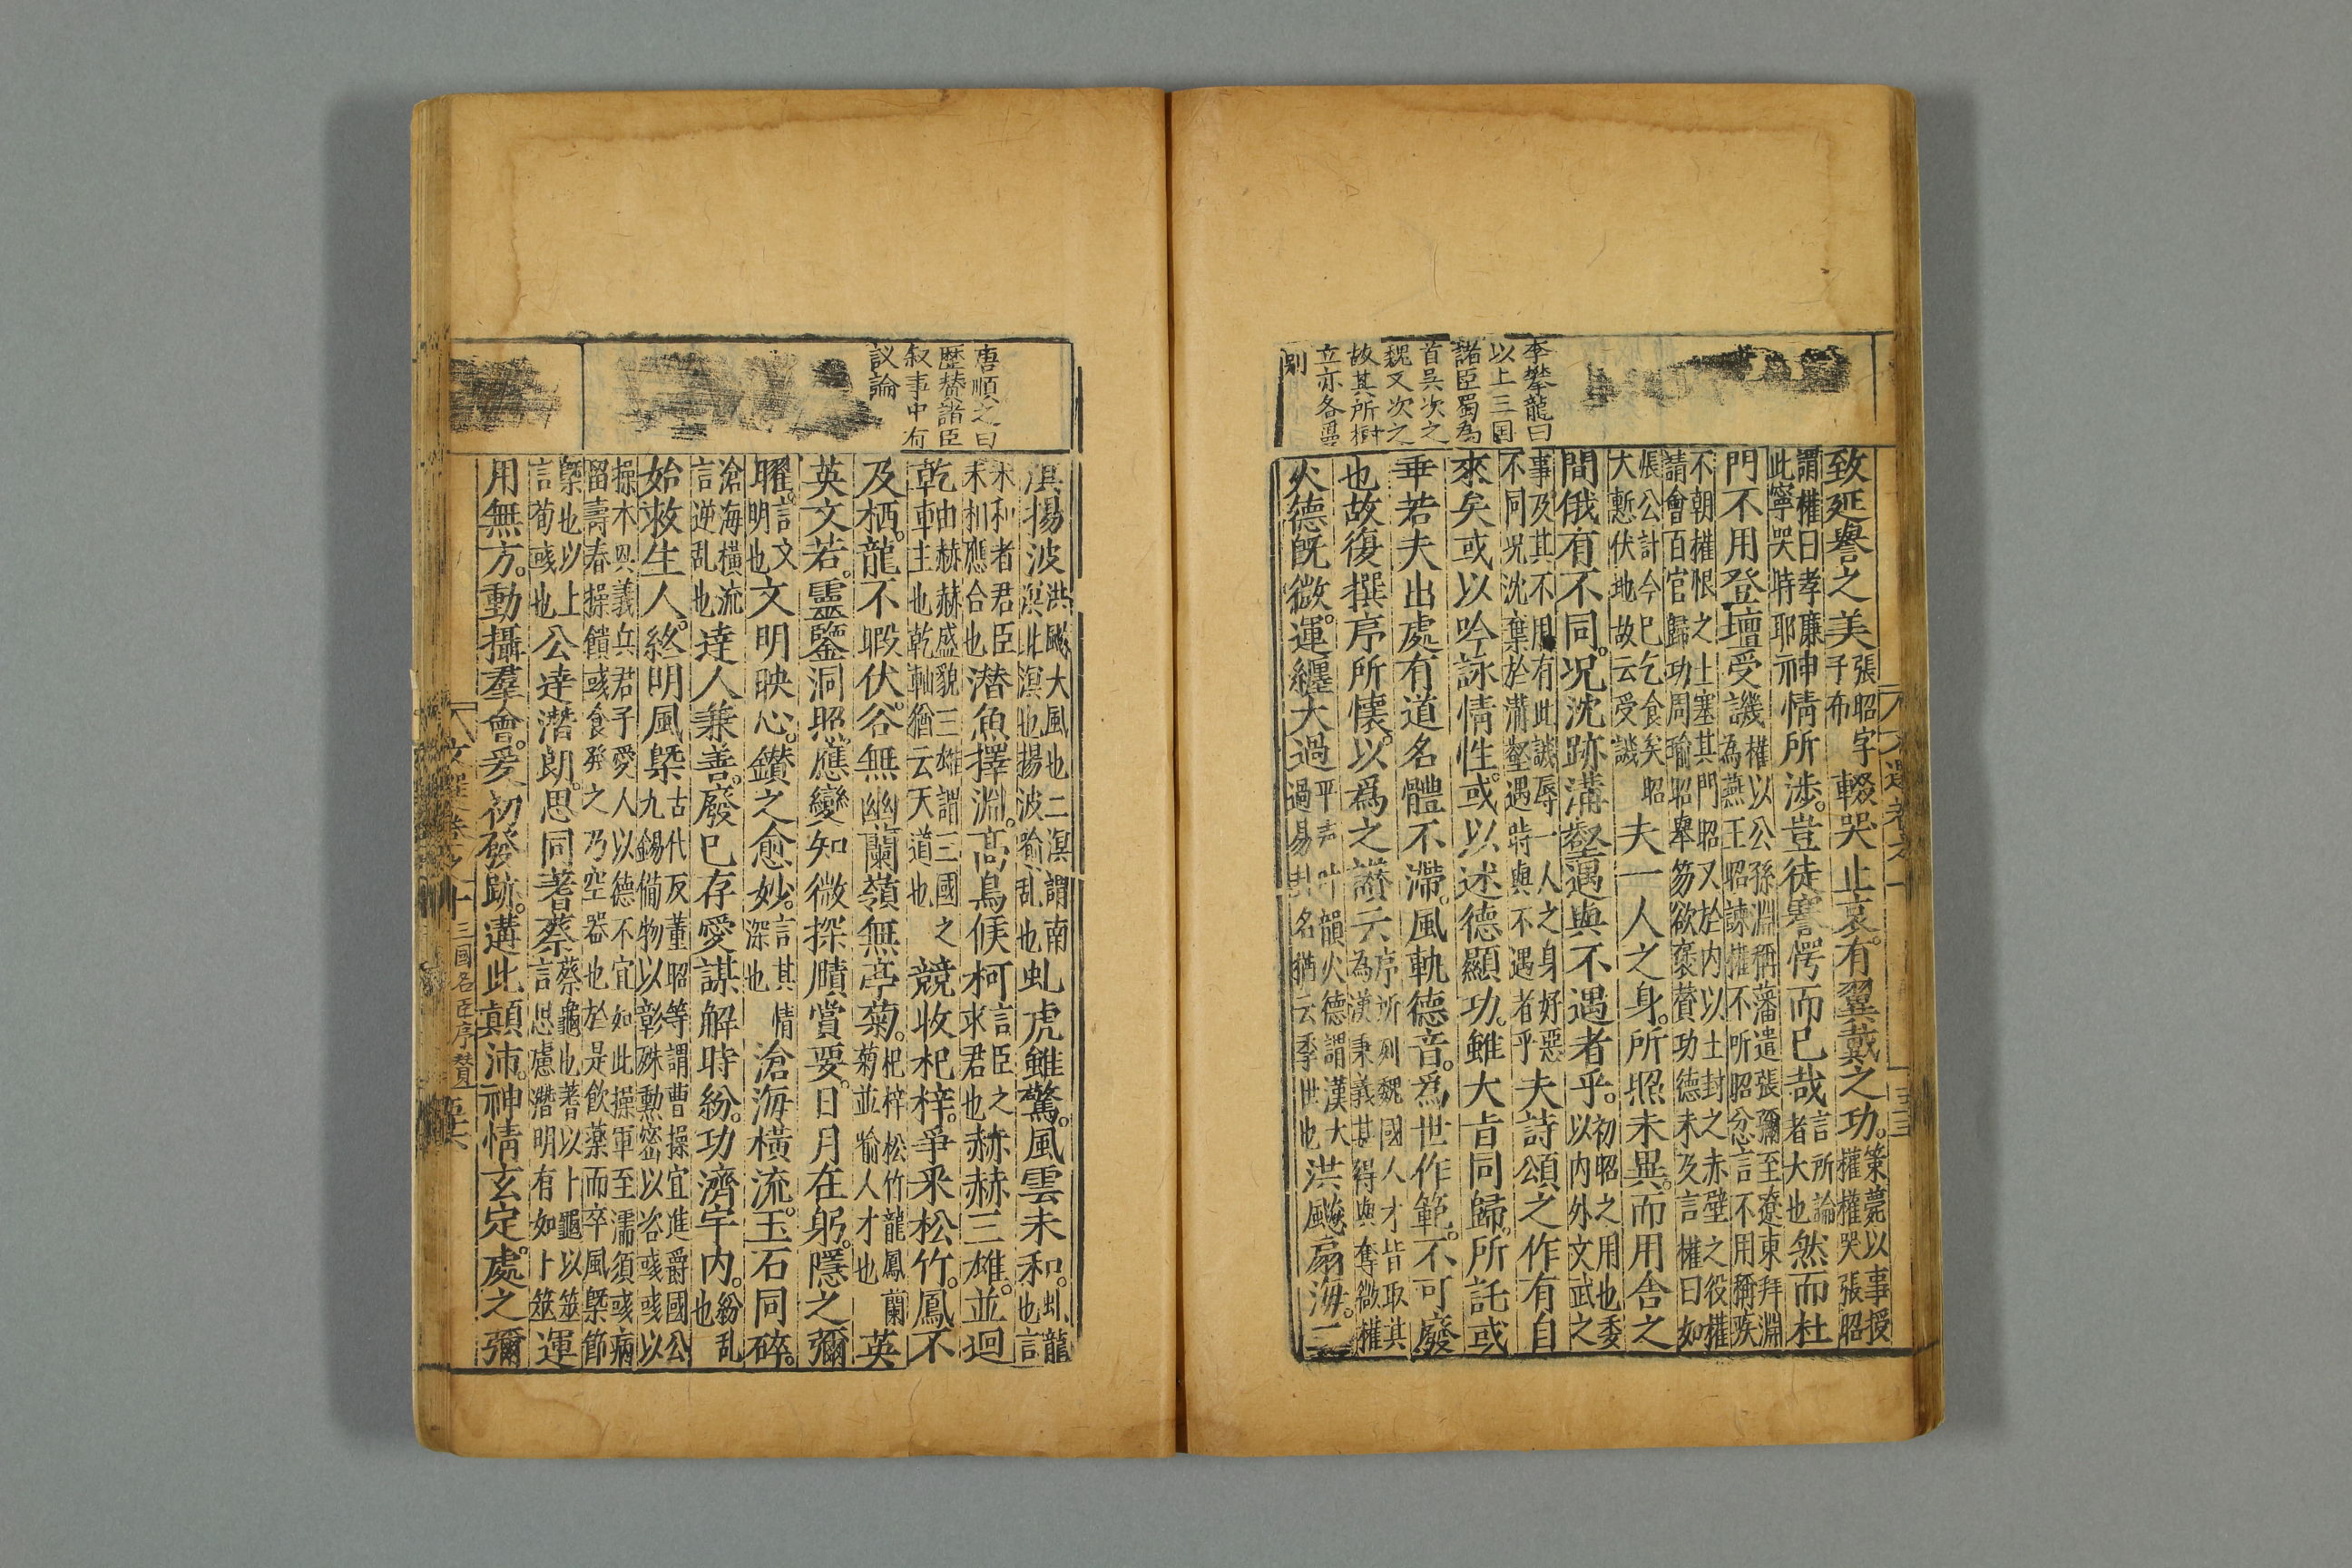 李攀龍曰
以上三国
諸臣蜀為
首吳次之
魏又次之
故其所樹
立亦各
別
致延譽之美張昭字子布輟哭止哀。有翼戴之功。策薨以事授權權哭張昭
謂權曰孝廉此寧哭時耶神情所渉。豈徒謇愕而已哉言所論者大也然而杜
門不用登壇受譏權以公孫淵稱藩遣張彌至遼東拜淵為燕王昭諫權不所昭忿言不用稱疾
不朝權恨之土塞其門昭又於内以土封之赤壁之役權請會百官歸功周瑜昭舉笏欲褒賛功德未及言權曰如
張公計今已乞食矣昭大慙伏地故云受譏夫一人之身。所照未異。而用舎之
間俄有不同。况沈跡溝壑遇與不遇者乎。初昭之用也委以内外文武之
事及其不用有此譏辱一人之身好惡不同况沈棄於溝壑遇時與不遇者乎夫詩頌之作有自
來矣或以吟詠情性。或以述德顯功。雖大㫖同歸。所託或
乖若夫出處有道名體不滯。風軌德音。爲世作範。不可廢
也故復撰序所懷。以爲之讃云序所列魏國人才皆取其為漢秉義甚得與奪微權
火德旣微。運纏大過平声叶韻火德謂漢大過易卦名猶云季世也洪飈扇海。二
八文選卷之十
唐順之曰
歴賛諸臣
叙事中有
议論
溟揚波洪飈大風也二溟謂南溟北溟也揚波喻乱也虬虎雖驚。風雲未和。虬龍也言
未和者君臣未相應合也潛魚擇淵。高鳥候柯言臣之求君也赫赫三雄。並迴
乾軸赫赫盛貌三雄謂三國之車主也乾軸猶云天道也競收杞梓。爭采松竹。鳳不
及栖。龍不暇伏。谷無幽蘭嶺無亭菊。杞梓松竹龍鳳蘭菊並喻人才也英
英文若。靈鑒洞照應變知微探賾賞要。日月在躬。隱之彌
曜。言文明也文明映心。鑽之愈妙。言其情深也滄海橫流。玉石同碎。
滄海橫流言逆乱也達人兼善。廢已存愛謀解時紛。功濟宇内。紛乱也
始救生人。終明風槩古代反董昭等謂曹操宜進爵國公九錫備物以彰殊勳密以咨彧彧以
操本興義兵君子愛人以德不宜如此操軍至濡須彧病留壽春操饋彧食發之乃空器也於是飲藥而卒風槩節
槩也以上言荀彧也公達潛朗。思同蓍蔡蔡龜也蓍以卜龜以筮言思慮潛明有如卜筮運
用無方。動攝羣會。爰初發跡。遘此顚沛。神情玄定。處之彌
文選卷之十 三國名臣序賛